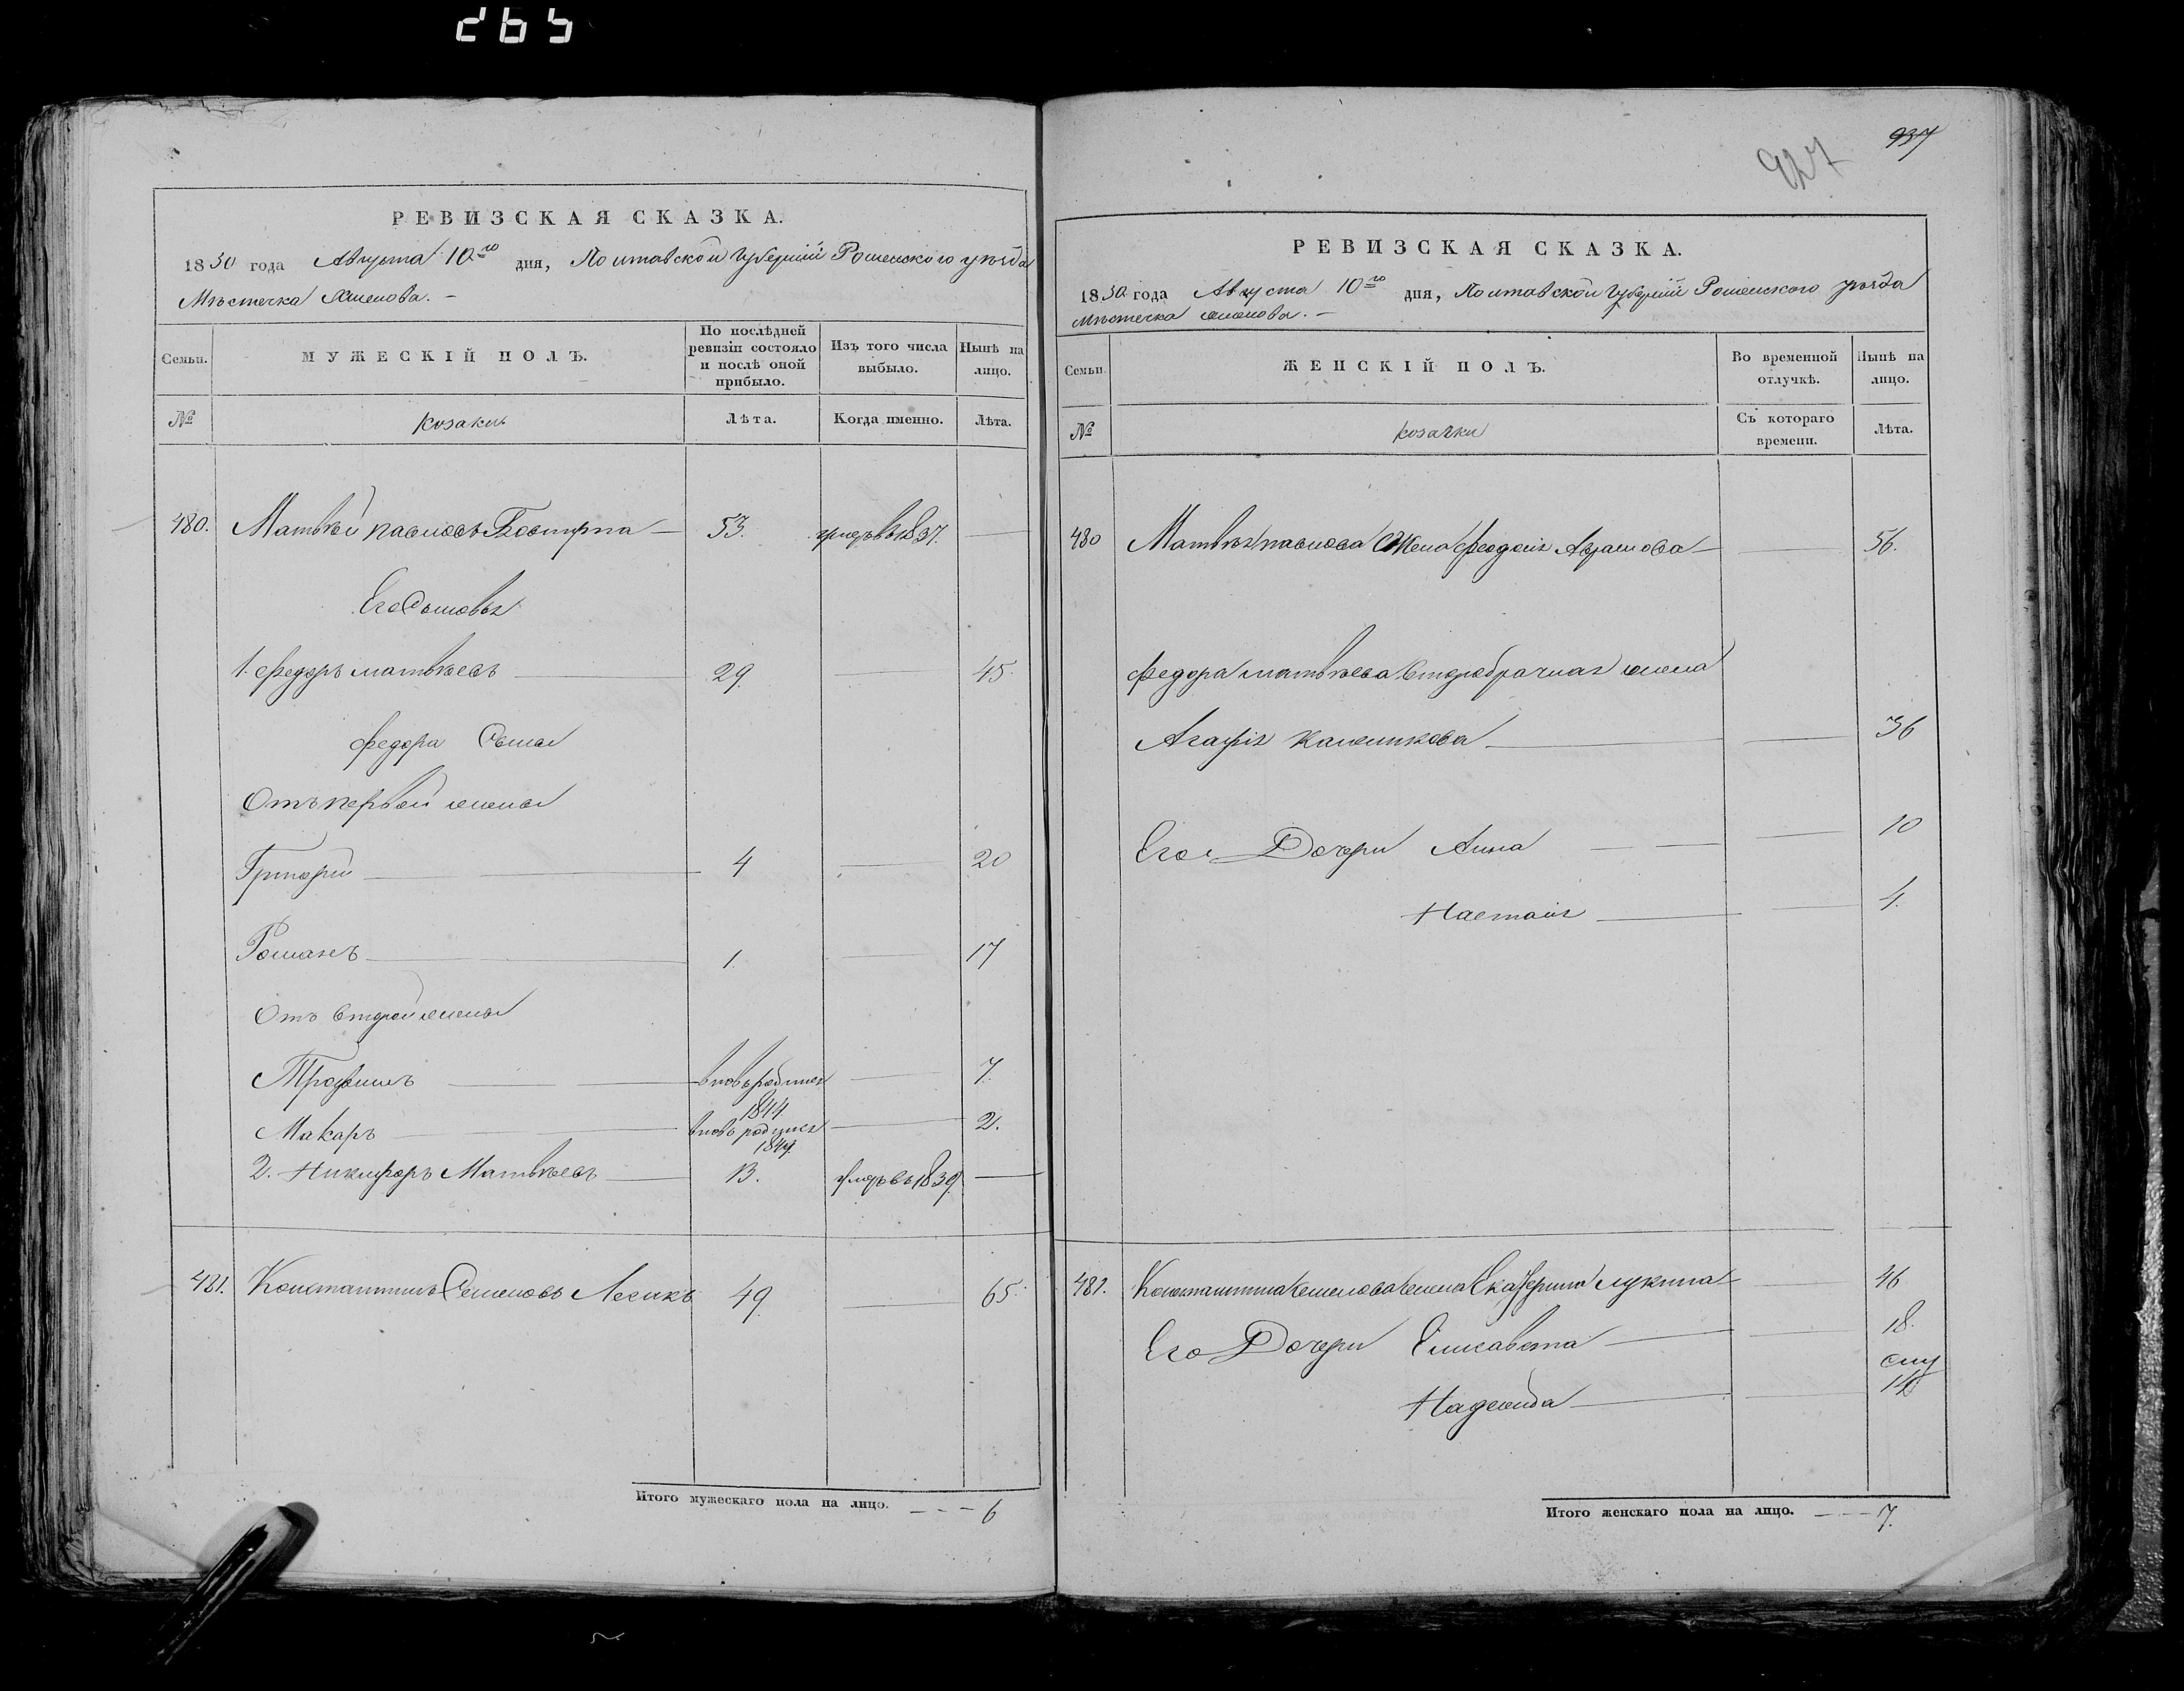 265
РЕВИЗСКАЯ СКАЗКА.
1850 года Августа 10го дня, Полтавской Губернии Роменского уѣзда
Мѣстечка
Семьи.
МУЖЕСКІЙ ПОЛЪ.
По послѣдней ревизіи состояло и послѣ оной прибыло.
Изъ того числа выбыло.
Нынѣ на лицо.
№
козаки
Лѣта.
Когда именно.
Лѣта.
480. Матвѣй Павловъ — 53. умеръ въ 1837. —
Его Сыновья
1. Федоръ Матвѣевъ — 29. — 45.
Федора Сыны
Отъ первой жены
Григорий — 4 — 20
Романъ — 1. — 17
Отъ второй жены
Трофимъ — вновь родился 1844. — 7.
Макаръ — вновь родился 1849. — 2.
2. Никифоръ Матвѣевъ — 13. умеръ въ 1839. —
481. Константинъ Семеновъ Лесикъ 49 — 65.
Итого мужескаго пола на лицо. - - - 6
927
937
РЕВИЗСКАЯ СКАЗКА.
1850 года Августа 10го дня, Полтавской Губернии Роменского уѣзда
Мѣстечка
Семьи
ЖЕНСКІЙ ПОЛЪ.
Во временной отлучкѣ.
Нынѣ на лицо.
№
козачки
Съ котораго времени.
Лѣта.
480 Матвѣя Павлова Жена Феодосия Абрамова — — 56.
Федора Матвѣева второбрачная жена
Агафия — — 36
Его Дочери Анна — — 10
Настасия — — 4.
481. Константина Семенова жена Екатерина Лукина — — 46
Его Дочери Елисавета — — 18.
Надежда — —
Итого женскаго пола на лицо. - - - 7.